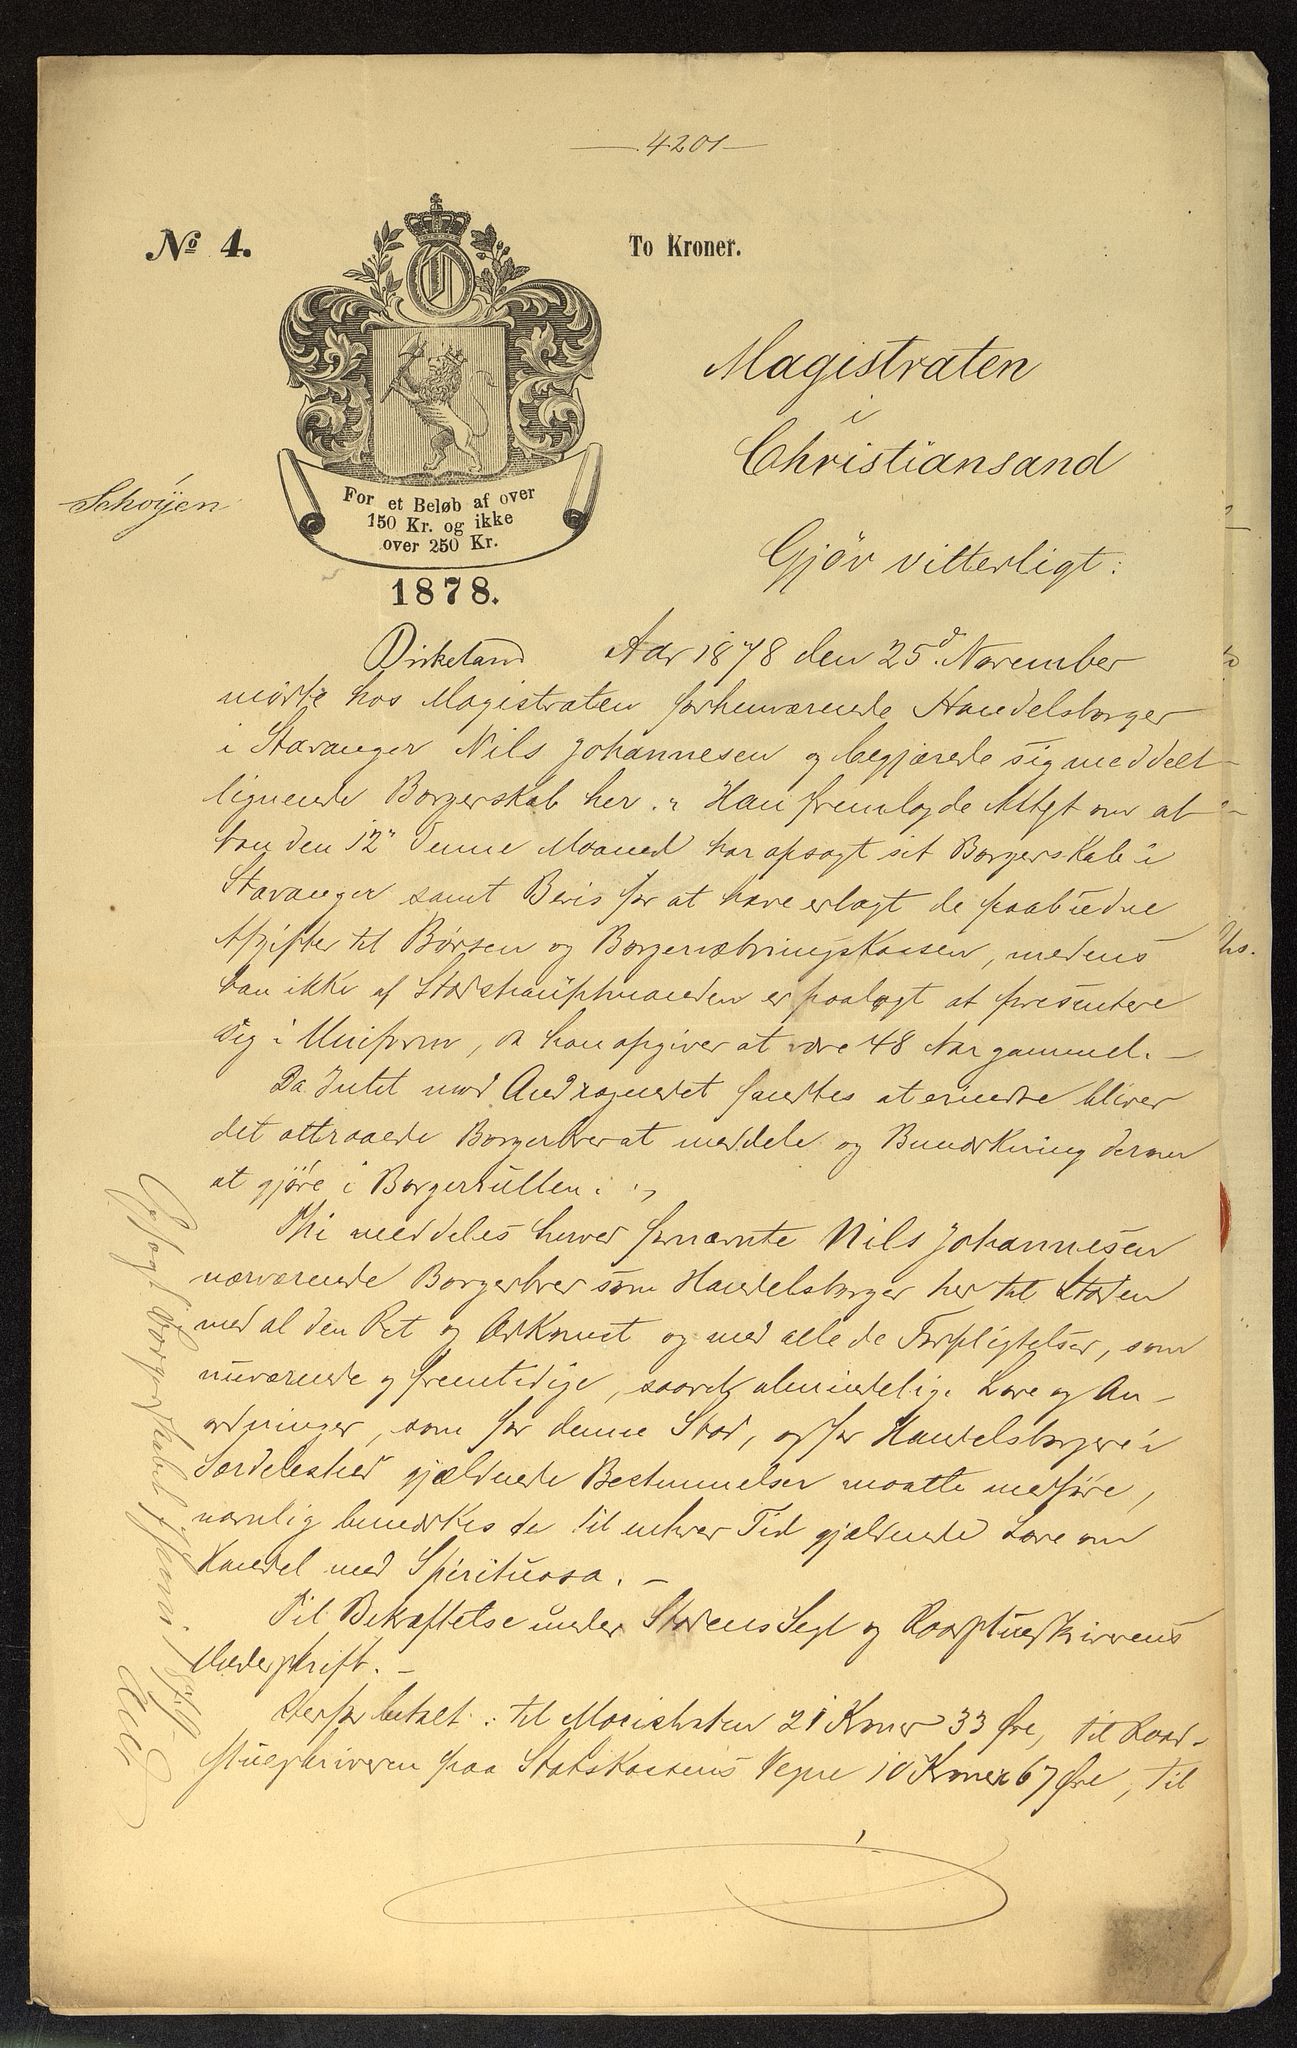 4201
No 4.
To Kroner.
Magistraten
i
Christiansand
Schøyen
For et Beløb af over
150 Kr. og ikke
over 250 Kr.
Gjør vitterligt:
1878.
Birkeland Aar 1878 den 25d November
mødte hos Magistraten forhenværende Handelsborger
i Stavanger Nils Johannesen og begjærede sig meddelt
lignende Borgerskab her. Han fremlagde Attest om at
han den 12te denne Maaned har opsagt sit Borgerskab i
Stavanger samt Bevis for at have erlagt de paabudne
Afgifter til Børsen og Borgervæbningskassen, medens
han ikke af Stadshauptmanden er paalagt at presentere
sig i Uniform, da han opgiver at være 48 Aar gammel. –
Da Intet mod Andragendet fandtes at erindre bliver
det attraaede Borgerbrev at meddele og Bemærkning derom
at gjøre i Borgerrullen.
Thi meddeles herved fornævnte Nils Johannesen
nærværende Borgerbrev som Handelsborger her til Staden
med al den Ret og Adkomst og med alle de Forpligtelser, som
nuværende og fremtidige, saavel almindelige Love og An-
ordninger, som for denne Stad, og for Handelsborgere i
Særdeleshed gjældende Bestemmelser maatte medføre,
navnlig bemærkes de til enhver Tid gjældende Love om
Handel med Spirituosa. –
Til Bekræftelse under Stadens Segl og Raadstueskriverens
Underskrift. –
Herfor betalt: til Magistraten 21 Kroner 33 Øre, til Raad-
stueskriveren paa Statskassens Vegne 10 Kroner 67 Øre, til
Opsagt Borgerskabet Juni 1879